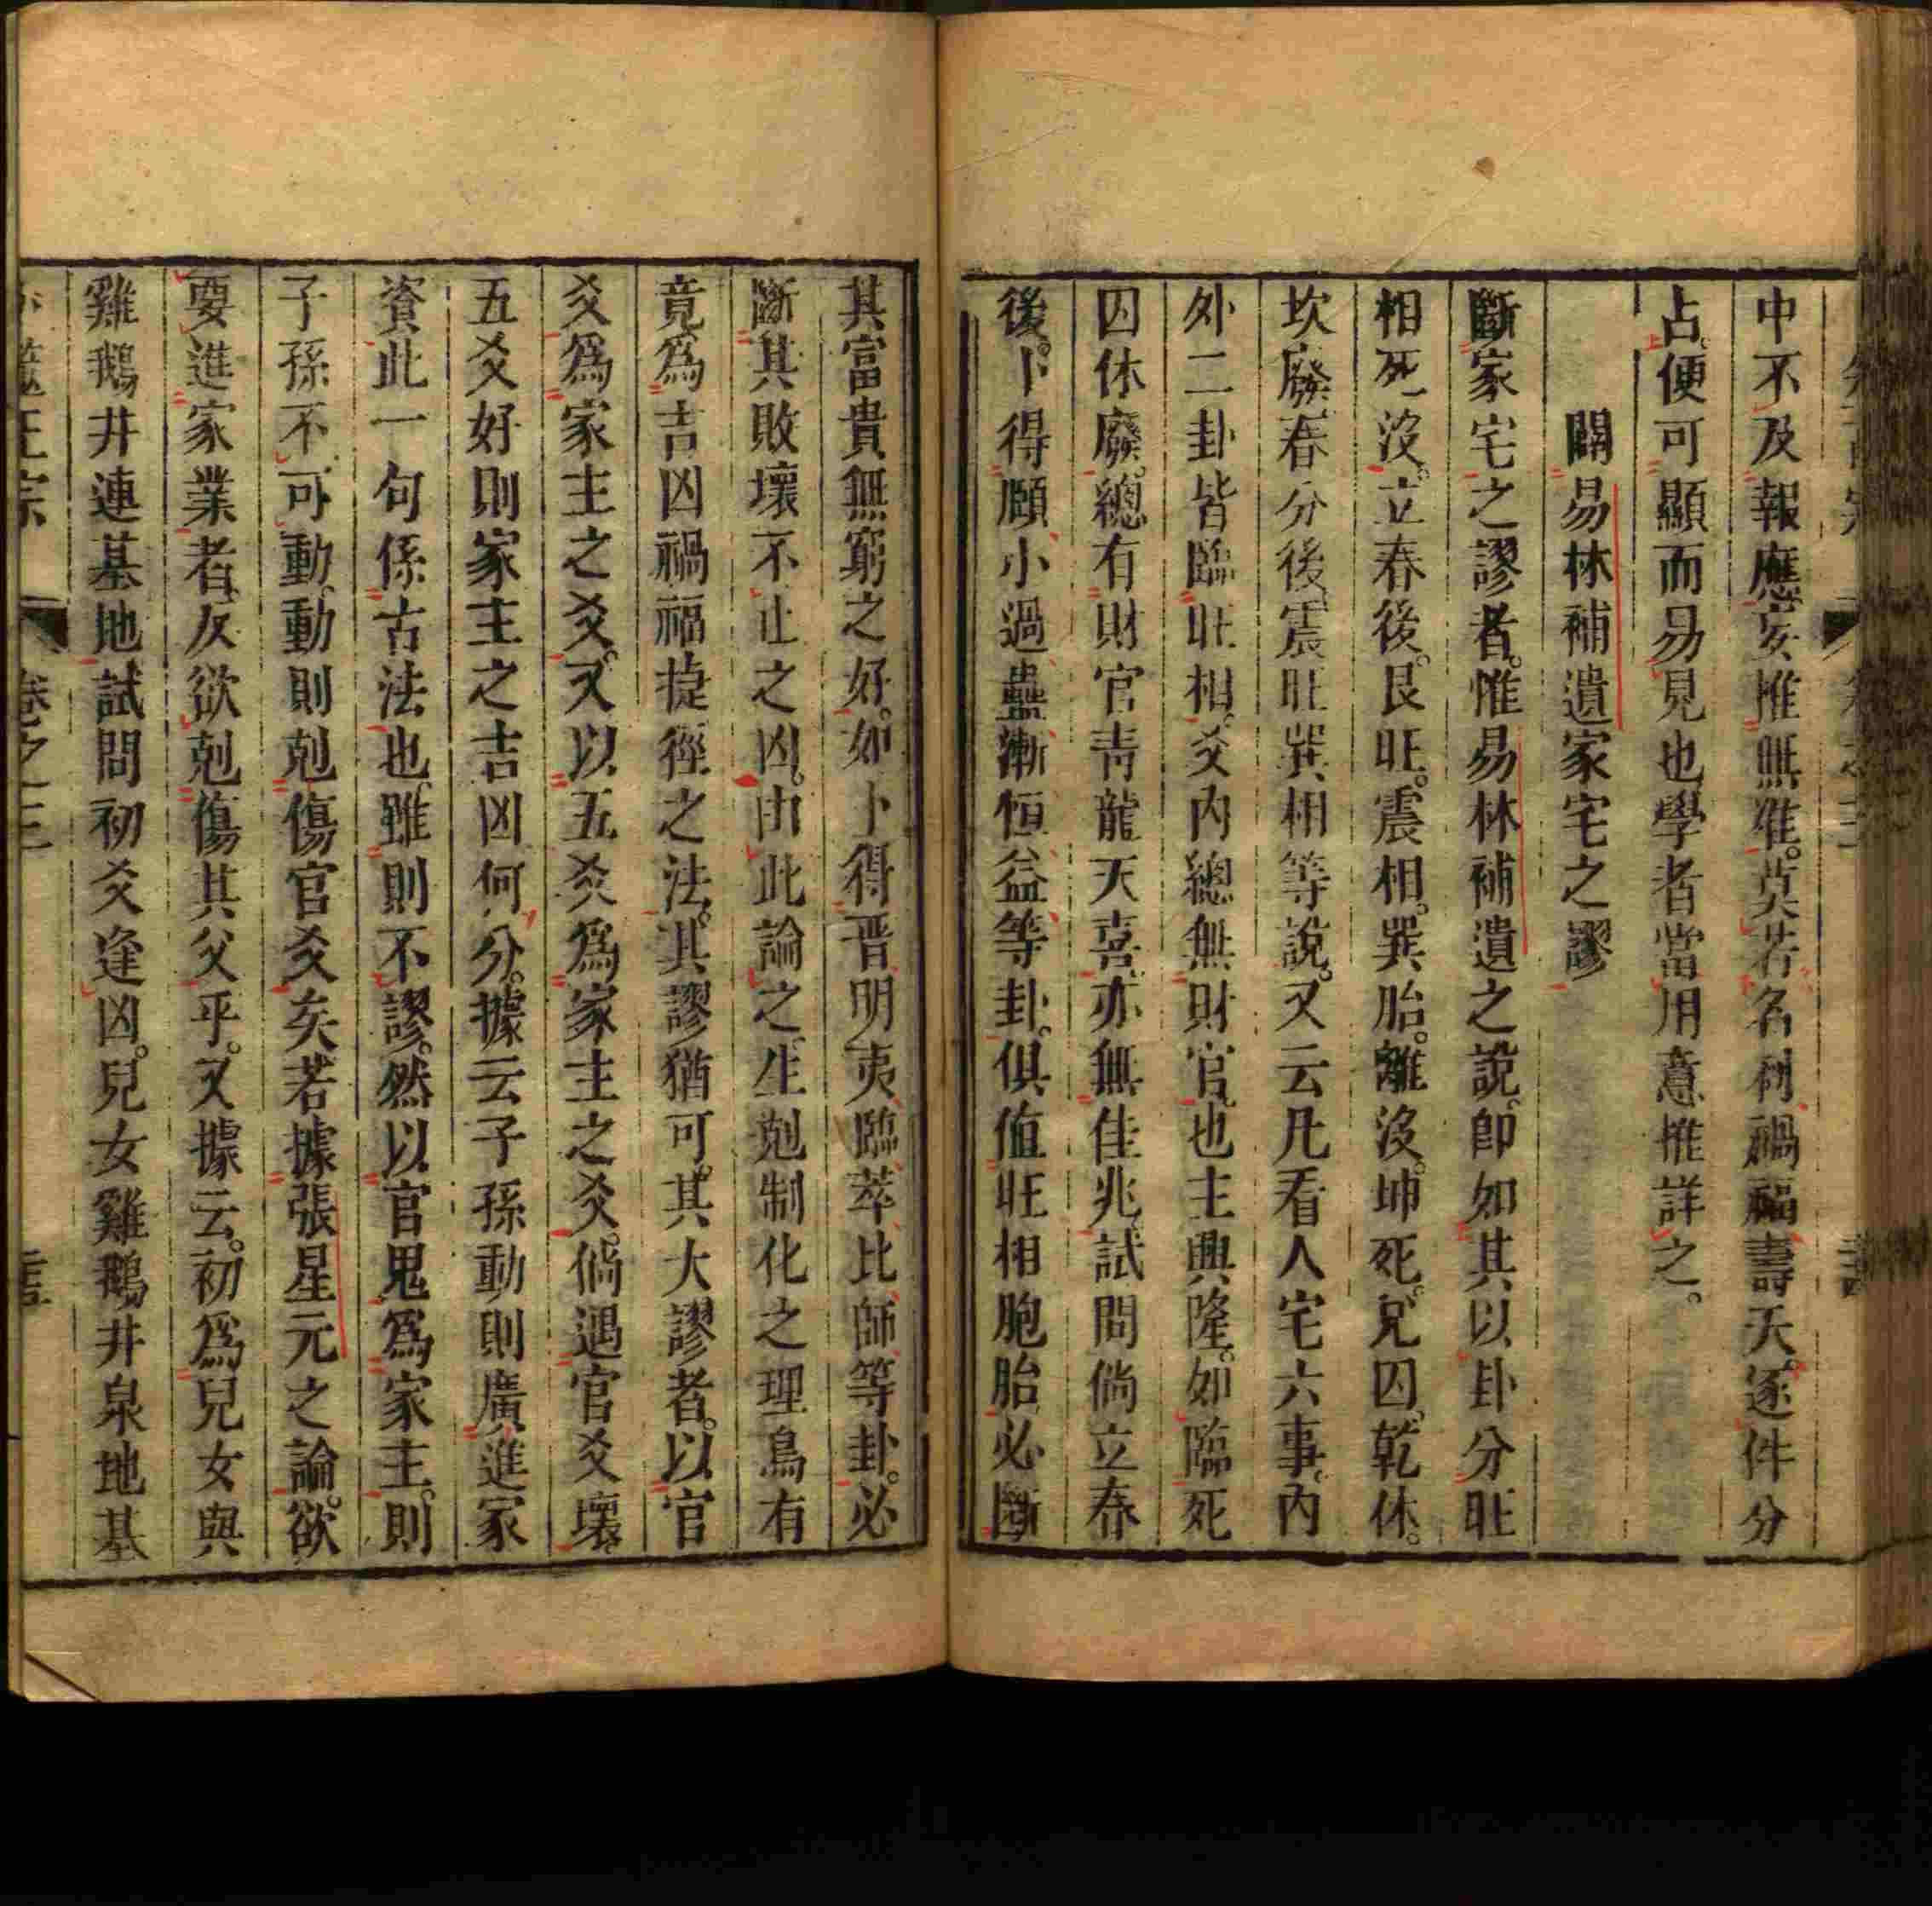 中不及報應妄推無准。莫若名利禍福壽夭。逐件分
占。便可顯而易見也。學者當用意推詳之。
闢易林補遺家宅之謬
斷家宅之謬者。惟易林補遺之說。卽如其以卦分旺
相死沒。立春後。艮旺。震相。巽胎。離沒。坤死。兌囚。乾休。
坎廢。春分後。震旺巽相等說。又云凡看人宅六事。內
外二卦皆臨旺相。爻內總無財官也主興隆。如臨死
囚休廢。總有財官靑龍天喜。亦無佳兆。試問倘立春
後。卜得頤小過蠱漸恒益等卦。俱值旺相胞胎必斷
其富貴無窮之好。如卜得晋明夷臨萃比師等卦。必
斷其敗壞不止之凶。由此論之。生剋制化之理烏有
竟爲吉凶禍福捷徑之法。其謬猶可。其大謬者。以官
爻爲家主之爻。又以五爻爲家主之爻。倘遇官爻壞
五爻好則家主之吉凶何分。據云子孫動則廣進家
資此一句係古法也。雖則不謬。然以官鬼爲家主。則
子孫不可動。動則剋傷官爻矣若據張星元之論。欲
要進家業者。反欲剋傷其父乎。又據云。初爲兒女與
雞鵝井連基地試問初爻逢凶。兒女雞鵝井泉地基
卷之三